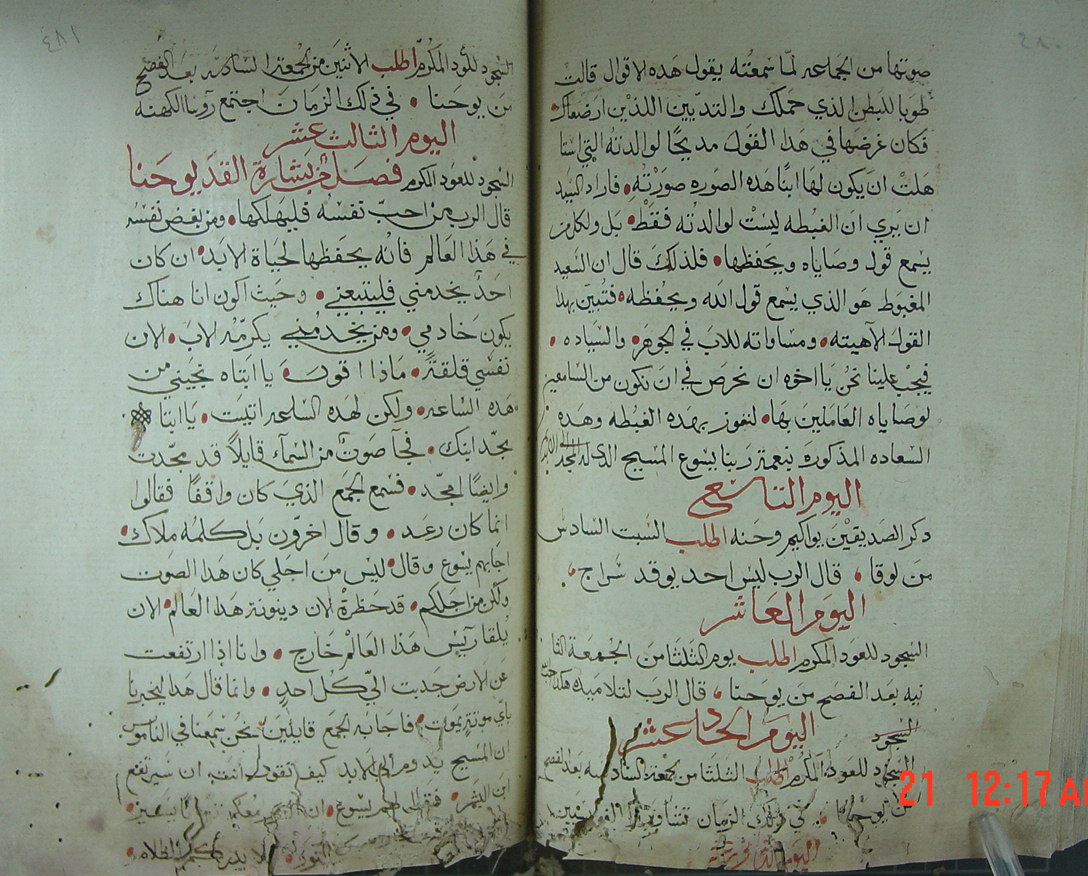 ٤٨٠
صوتها من الجماعه لما سمعته يقول هده الاقوال قالت
طوبا للبطن الذي حملك والتديين اللذين ارضعاك
فكان غرضها في هدا القول مديحًا لوالدته التي استا
هلت ان يكون لها ابنًا هده الصوره صورته فاراد السيد
ان يري ان الغبطه ليست لوالدته فقط بل ولكل من
يسمع قوله وصاياه ويحفظها فلذلك قال ان السعيد
المغبوط هو الذي يسمع قول الله ويحفظه فتبين بهدا
القول الاهيته ومساواته للاب في الجوهر والسياده
فيجب علينا نحن يا اخوه ان نحرص في ان نكون من السامعين
لوصاياه العاملين بها لنفوز بهده الغبطه وهده
السعاده المذكوره بنعمة ربنا يسوع المسيح الدي له المجد
اليوم التاسع
دكر الصديقين يواكيم وحنه اطلب السبت السادس
من لوقا قال الرب ليس احد يوقد سراج
اليوم العاشر
السجود للعود المكرم اطلب يوم الثلثا من الجمعة الثا
نيه بعد الفصح من يوحنا قال الرب لتلاميده هكدا
اليوم الحاد عشر
السجود
السجود للعود المكرم اطلب الثلثا من جمعة السادسه بعد الفصح
من يوحنا في دلك الزمان
اليوم الثاني
21 12:17 A
٤٨١
السجود للعود المكرم اطلب الاثنين من الجمعة السادسه بعد الفصح
من يوحنا في ذلك الزمان اجتمع روسا الكهنه
اليوم الثالث عشر
السجود للعود المكرم فصل من بشارة القديس يوحنا
قال الرب من احب نفسه فليهلكها ومن بغض نفسه
في هذا العالم فانه يحفظها لحياة الابد ان كان
احدٌ يخدمني فليتبعني وحيث اكون انا هناك
يكون خادمي ومن يخدمني يكرمه الاب الان
نفسي قلقةً ماذا اقول يا ابتاه نجيني من
هده الساعه ولكن لهده الساعه اتيت يا ابتا
مجد ابنك فجآ صوتٌ من السمآء قايلاً قد مجدت
وايضًا امجد فسمع الجمع الذي كان واقفًا فقالوا
انما كان رعد وقال اخرون بل كلمه ملاك
اجابهم يسوع وقال ليس من اجلي كان هدا الصوت
ولكن من اجلكم قد حضرة الان دينونة هدا العالم الان
يلقا رييس هذا العالم خارج وانا اذا ارتفعت
عن الارض جدبت الي كل احدٍ وانما قال هدا ليخبر
باي موتة يموت فاجابه الجمع قايلين نحن سمعنا في الناموس
ان المسيح يدوم الي الابد كيف تقول انت ان سيرتفع
ابن البشر فقال لهم يسوع ان النور معكم
النور ليلا يدرككم الظلام